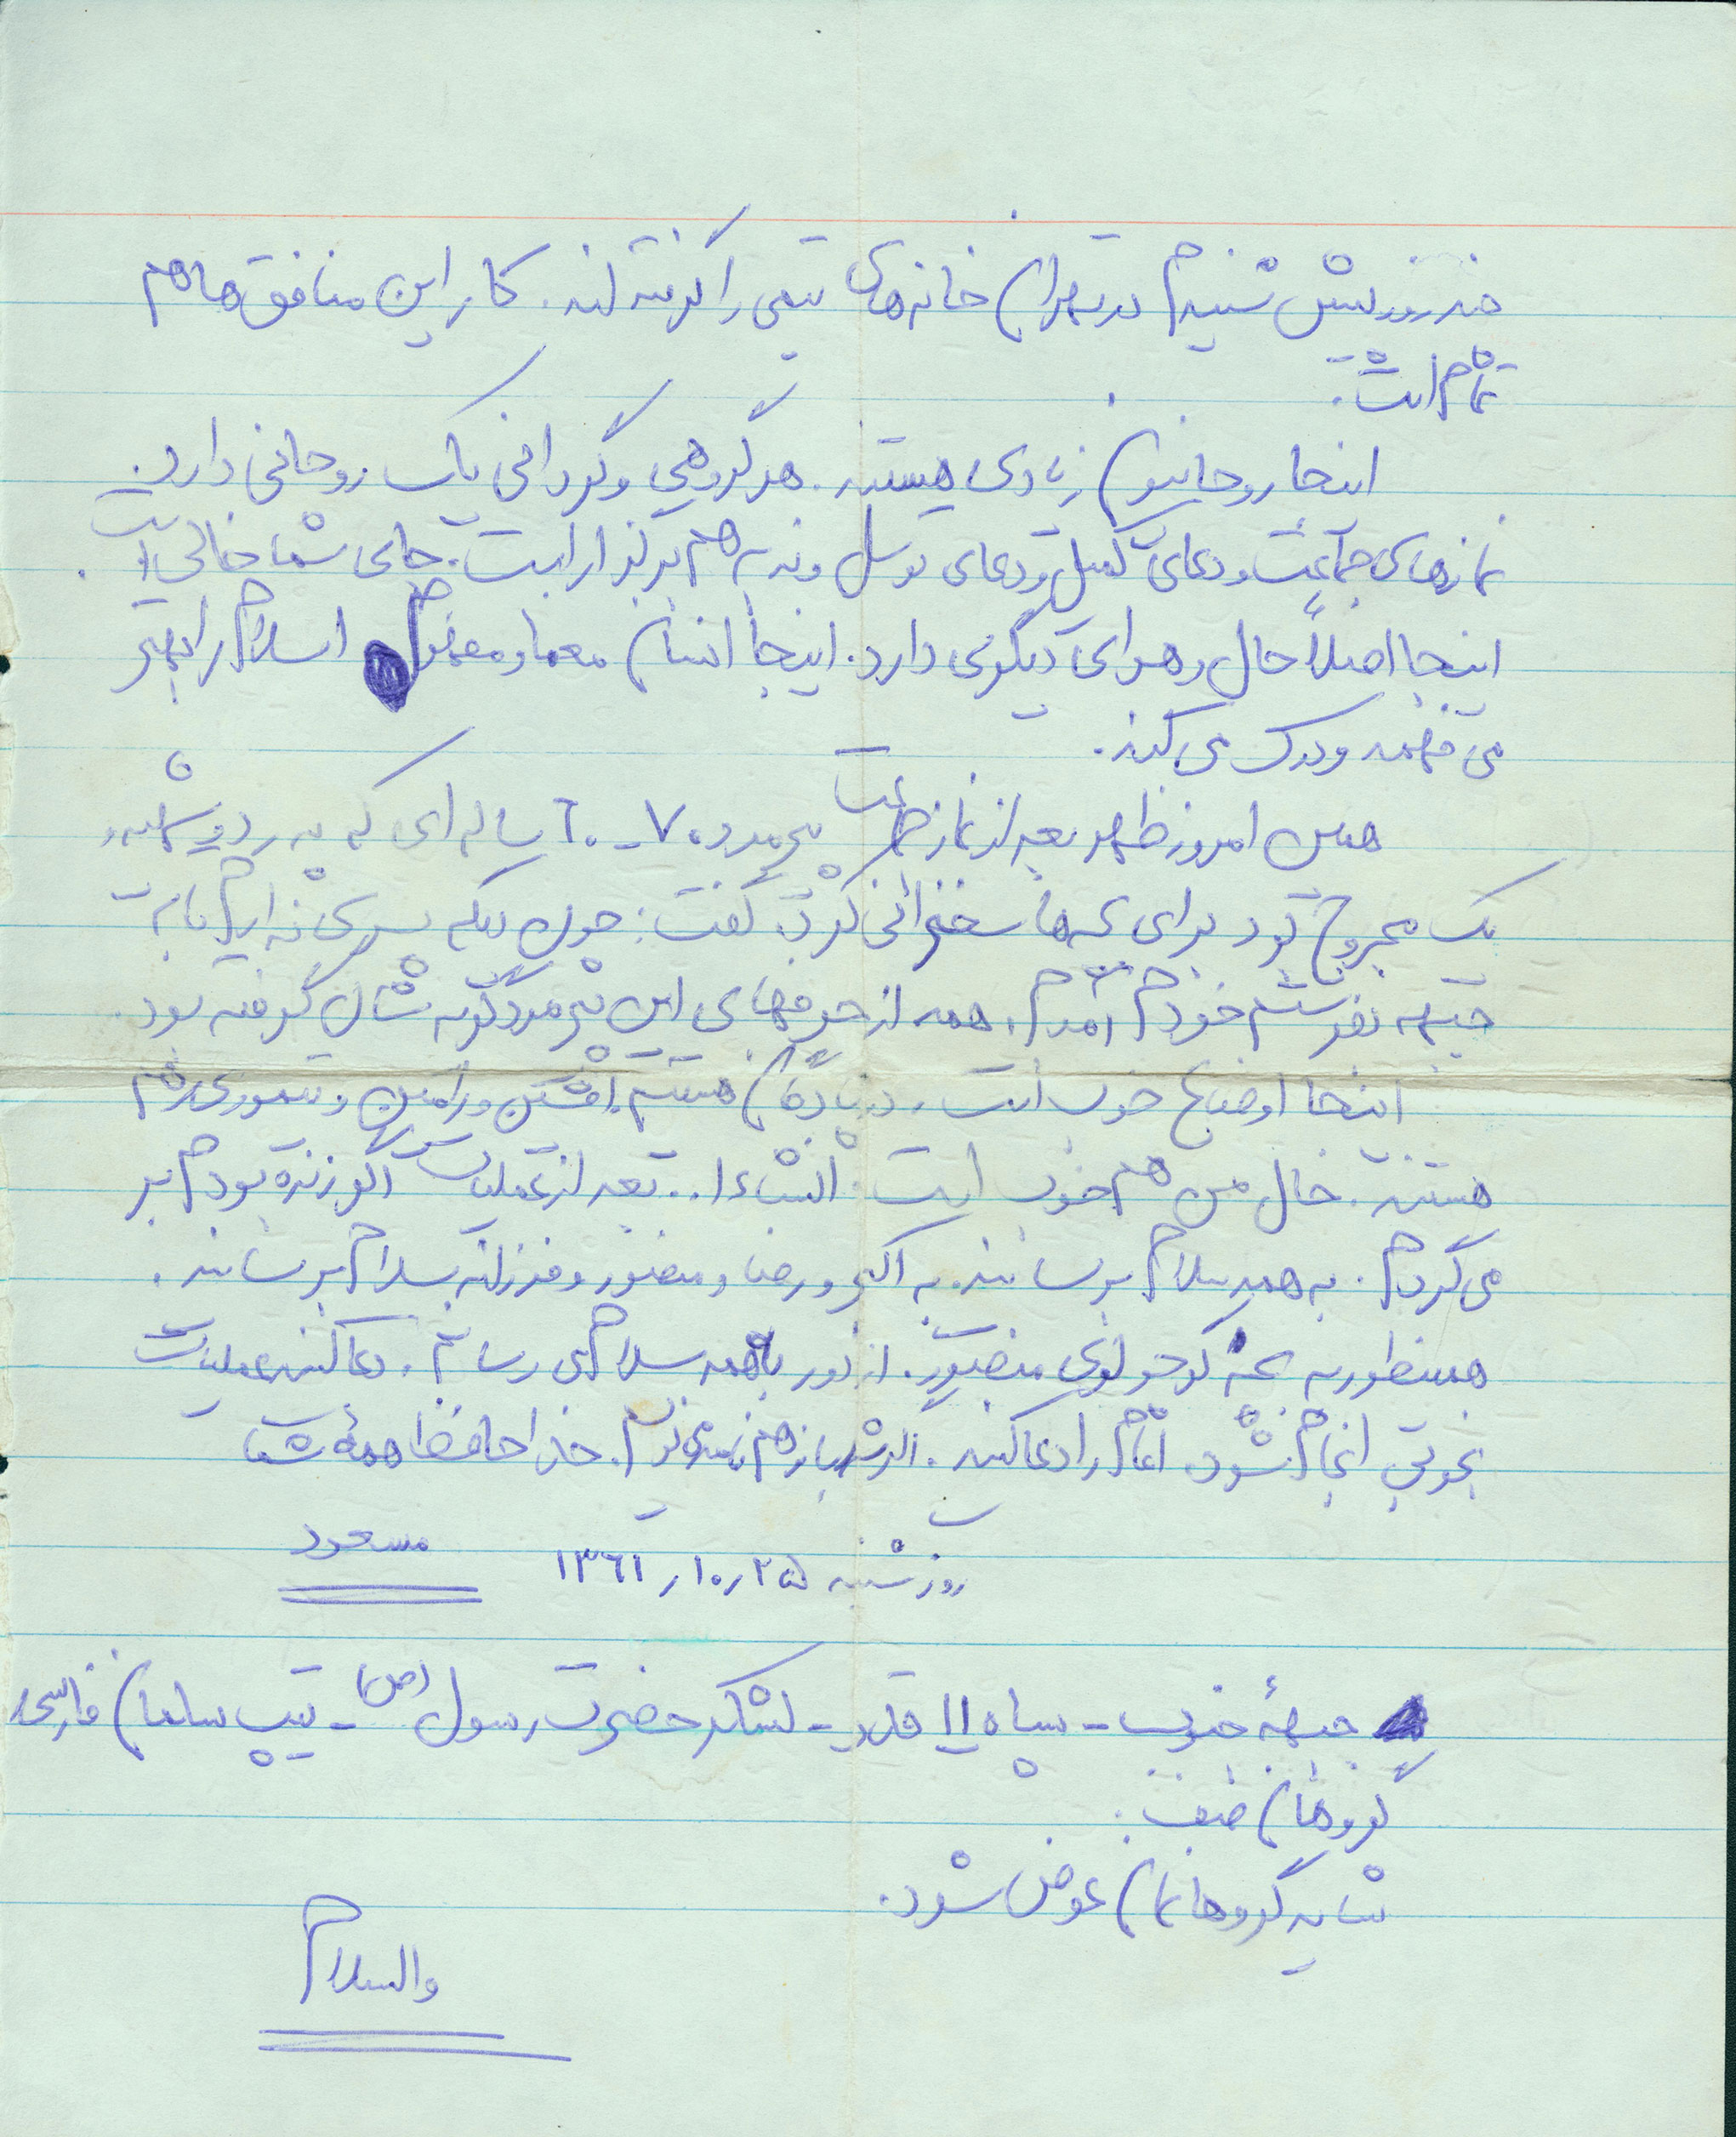 چند روز پیش شنیدم در تهران خانه‌های تیمی را گرفته‌اند. کار این منافق‌ها هم
تمام است.
اینجا روحانیون زیادی هستند. هر گروهی و گردانی یک روحانی دارد.
نمازهای جماعت و دعای کمیل و دعای توسل و ندبه هم برگزار است. جای شما خالی است.
اینجا اصلاً حال و هوای دیگری دارد. اینجا انسان معنا و مفهوم اسلام را بهتر
می فهمد و درک می کند.
همین امروز ظهر بعد از نماز جماعت پیرمرد ۷۰ـ۶۰ ساله‌ای که پدر دو شهید و
یک مجروح بود برای بچه‌ها سخنرانی کرد. گفت: چون دیگر پسری ندارم تا به
جبهه بفرستم خودم آمدم. همه از حرفهای این پیرمرد گریه شان گرفته بود.
اینجا اوضاع خوب است. در پادگان هستیم. افشین ورامین و تیموری هم
هستند. حال من هم خوب است. انشاءا.. بعد از عملیات اگر زنده بودم بر
می گردم. به همه سلام برسانید. به اکبر و رضا و منصور و فرزانه سلام برسانید.
همینطور به بچه کوچولوی منصور. از دور به همه سلام می رسانم. دعا کنید عملیات
بخوبی انجام شود. امام را دعا کنید. اگر شد باز هم نامه می نویسم. خدا حافظ همهٔ شما
روز شنبه ۱۳۶۱٫۱۰٫۲۵ مسعود
جبههٔ جنوب - سپاه ۱۱ قدر - لشکر حضرت رسول (ص) - تیپ سلمان فارسی
گروهان
شاید گروهانمان عوض شود.
والسلام